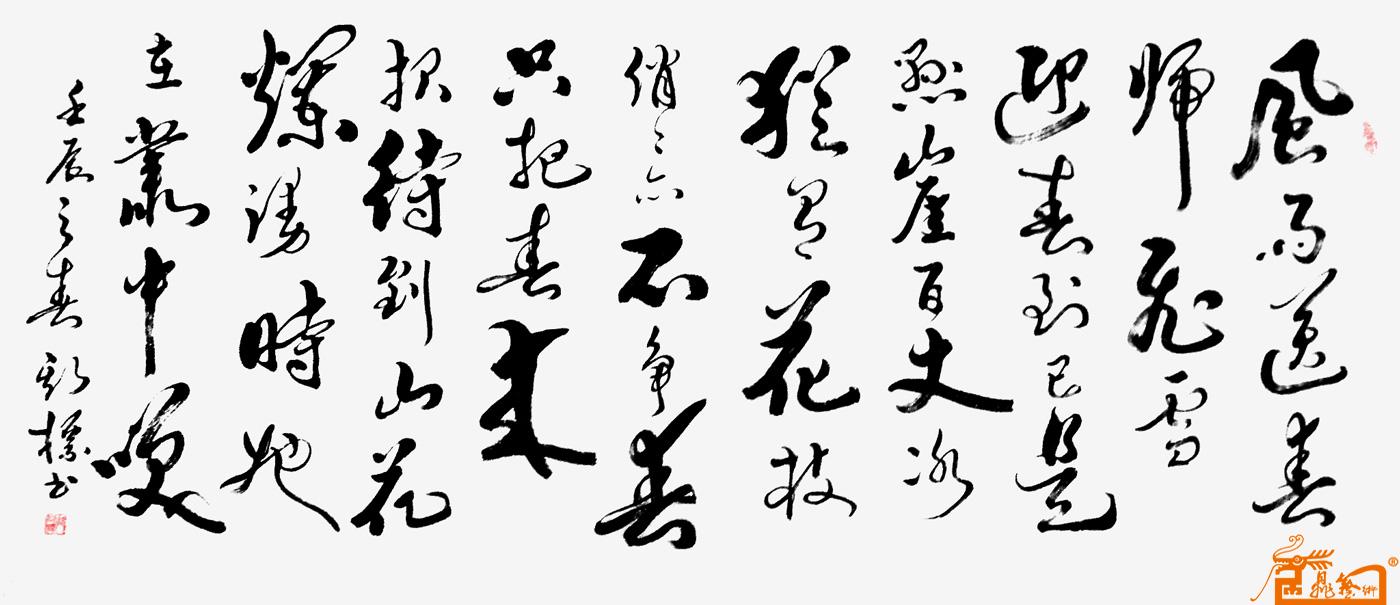 風雨送春
歸飛雪
迎春到已是
懸崖百丈冰
猶有花枝
俏々亦不争春
只把春来
报待到山花
爛漫時她
在叢中咲
壬辰之春 書